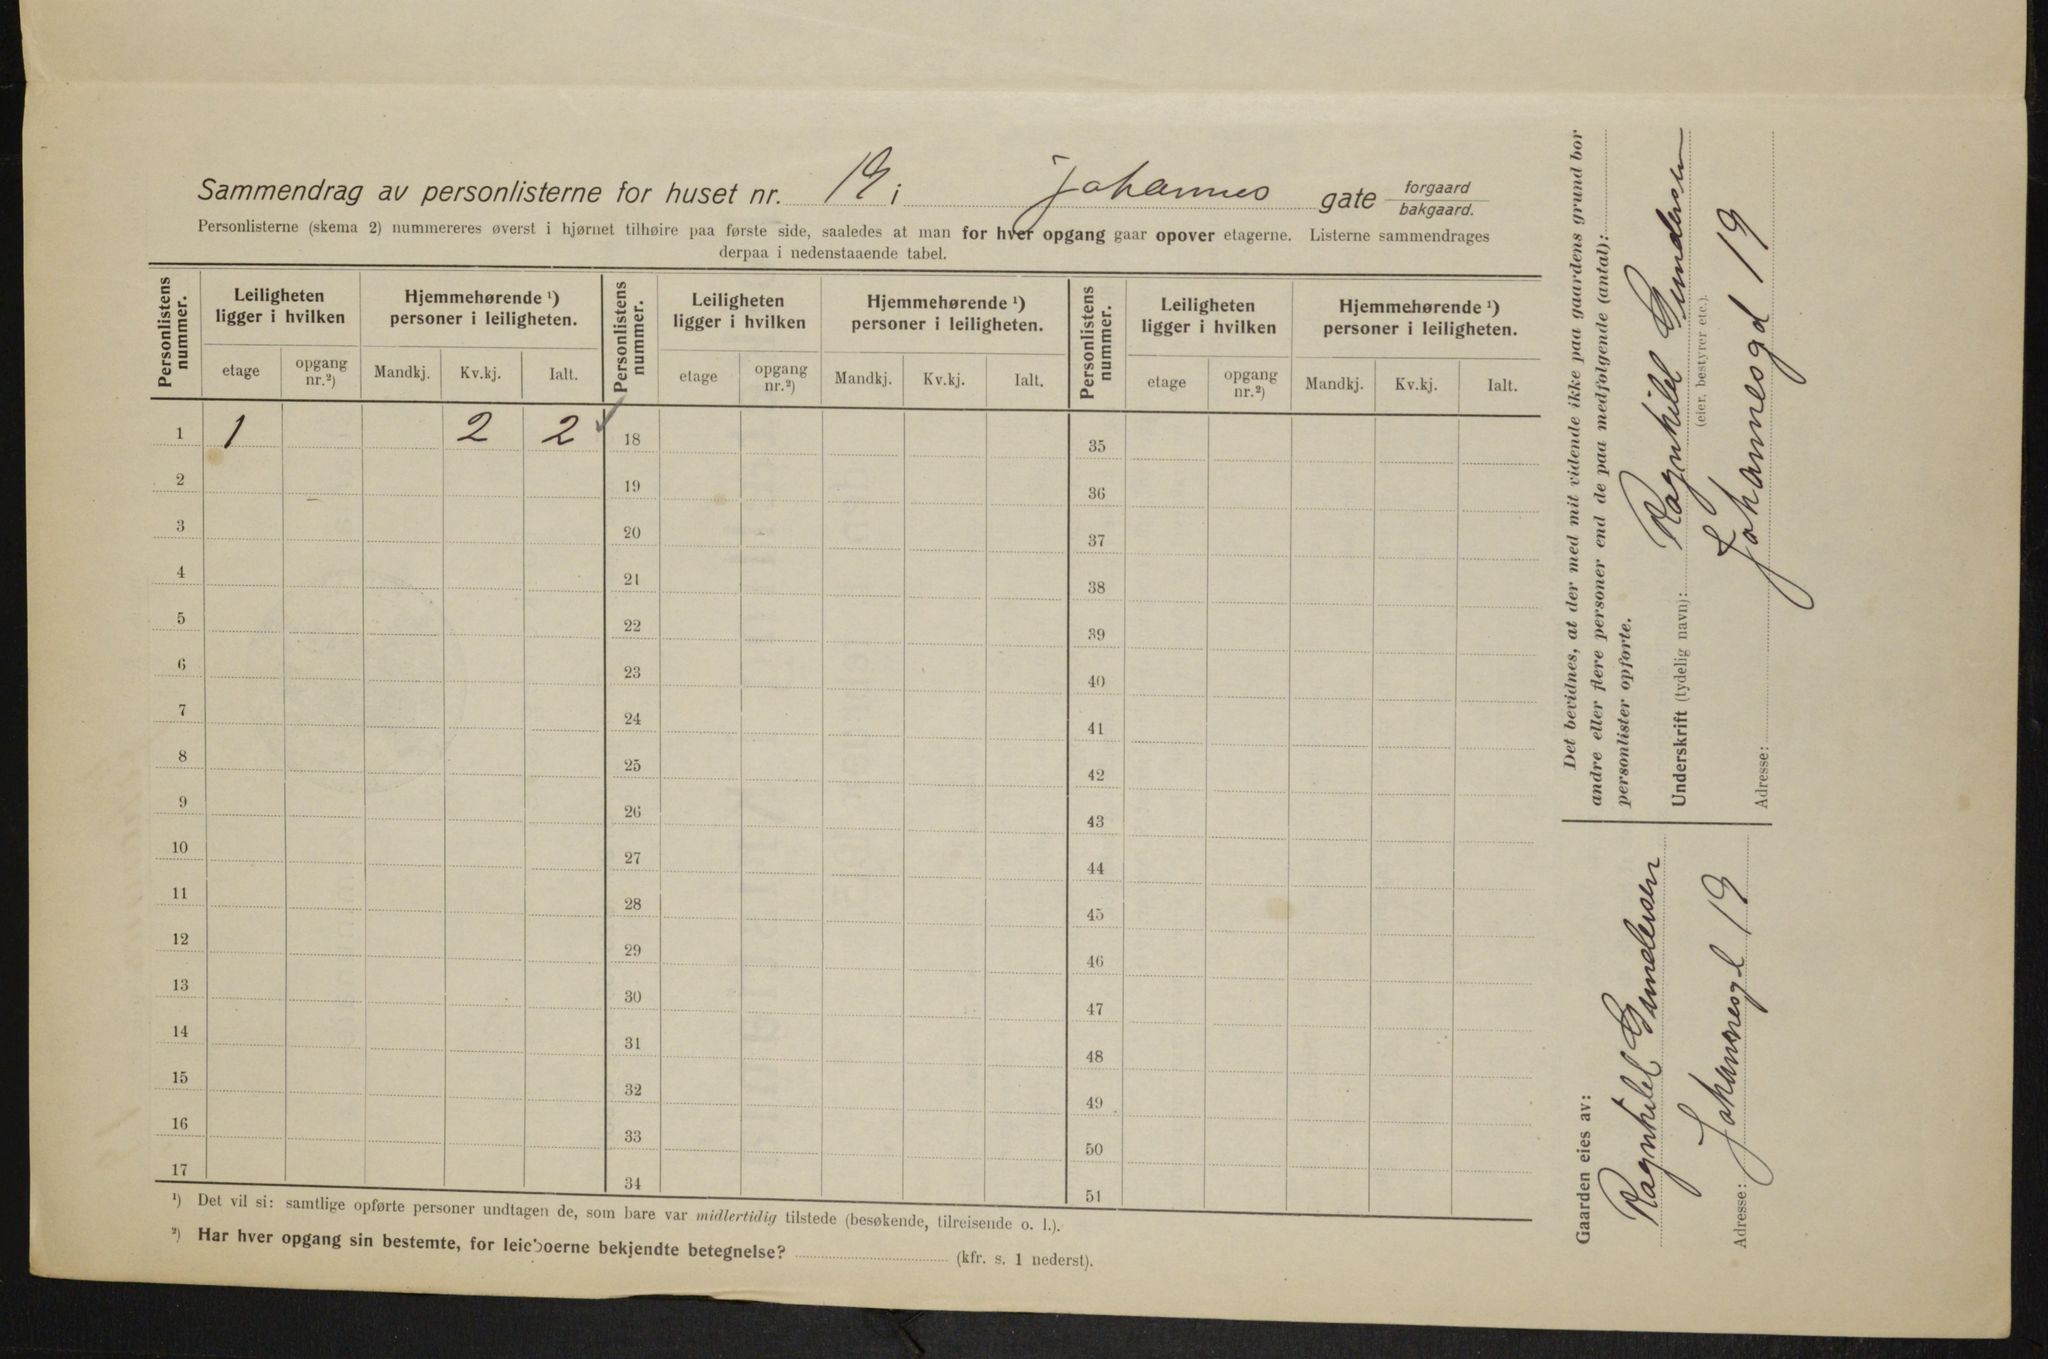 Sammendrag av personlisterne for huset nr. 19 i Johannes gate forgaard bakgaard.
Personlisterne (skema 2) nummereres øverst i hjørnet tilhøire paa første side, saaledes at man for hver opgang gaar opover etagerne. Listerne sammendrages
derpaa i nedenstaaende tabel.
Personlistens nummer. Leiligheten ligger i hvilken Hjemmehørende ¹) personer i leiligheten. Personlistens nummer. Leiligheten ligger i hvilken Hjemmehørende ¹) personer i leiligheten. Personlistens nummer. Leiligheten ligger i hvilken Hjemmehørende ¹) personer i leiligheten.
etage opgang nr.²) Mandkj. Kv.kj. Ialt. etage opgang nr.²) Mandkj. Kv.kj. Ialt. etage opgang nr.²) Mandkj. Kv.kj. Ialt.
1 1 2 2 18 35
2 19 36
3 20 37
4 21 38
5 22 39
6 23 40
7 24 41
8 25 42
9 26 43
10 27 44
11 28 45
12 29 46
13 30 47
14 31 48
15 32 49
16 33 50
17 34 51
¹) Det vil si: samtlige opførte personer undtagen de, som bare var midlertidig tilstede (besøkende, tilreisende o. l.).
²) Har hver opgang sin bestemte, for leieboerne bekjendte betegnelse? (kfr. s. 1 nederst).
Det bevidnes, at der med mit vidende ikke paa gaardens grund bor
andre eller flere personer end de paa medfølgende (antal):
personlister opførte.
Underskrift (tydelig navn): Ragnhild Gundersen
(eier, bestyrer etc.).
Adresse: Johannesgd 19
Gaarden eies av:
Ragnhild Gundersen
Adresse: Johannesgd 19